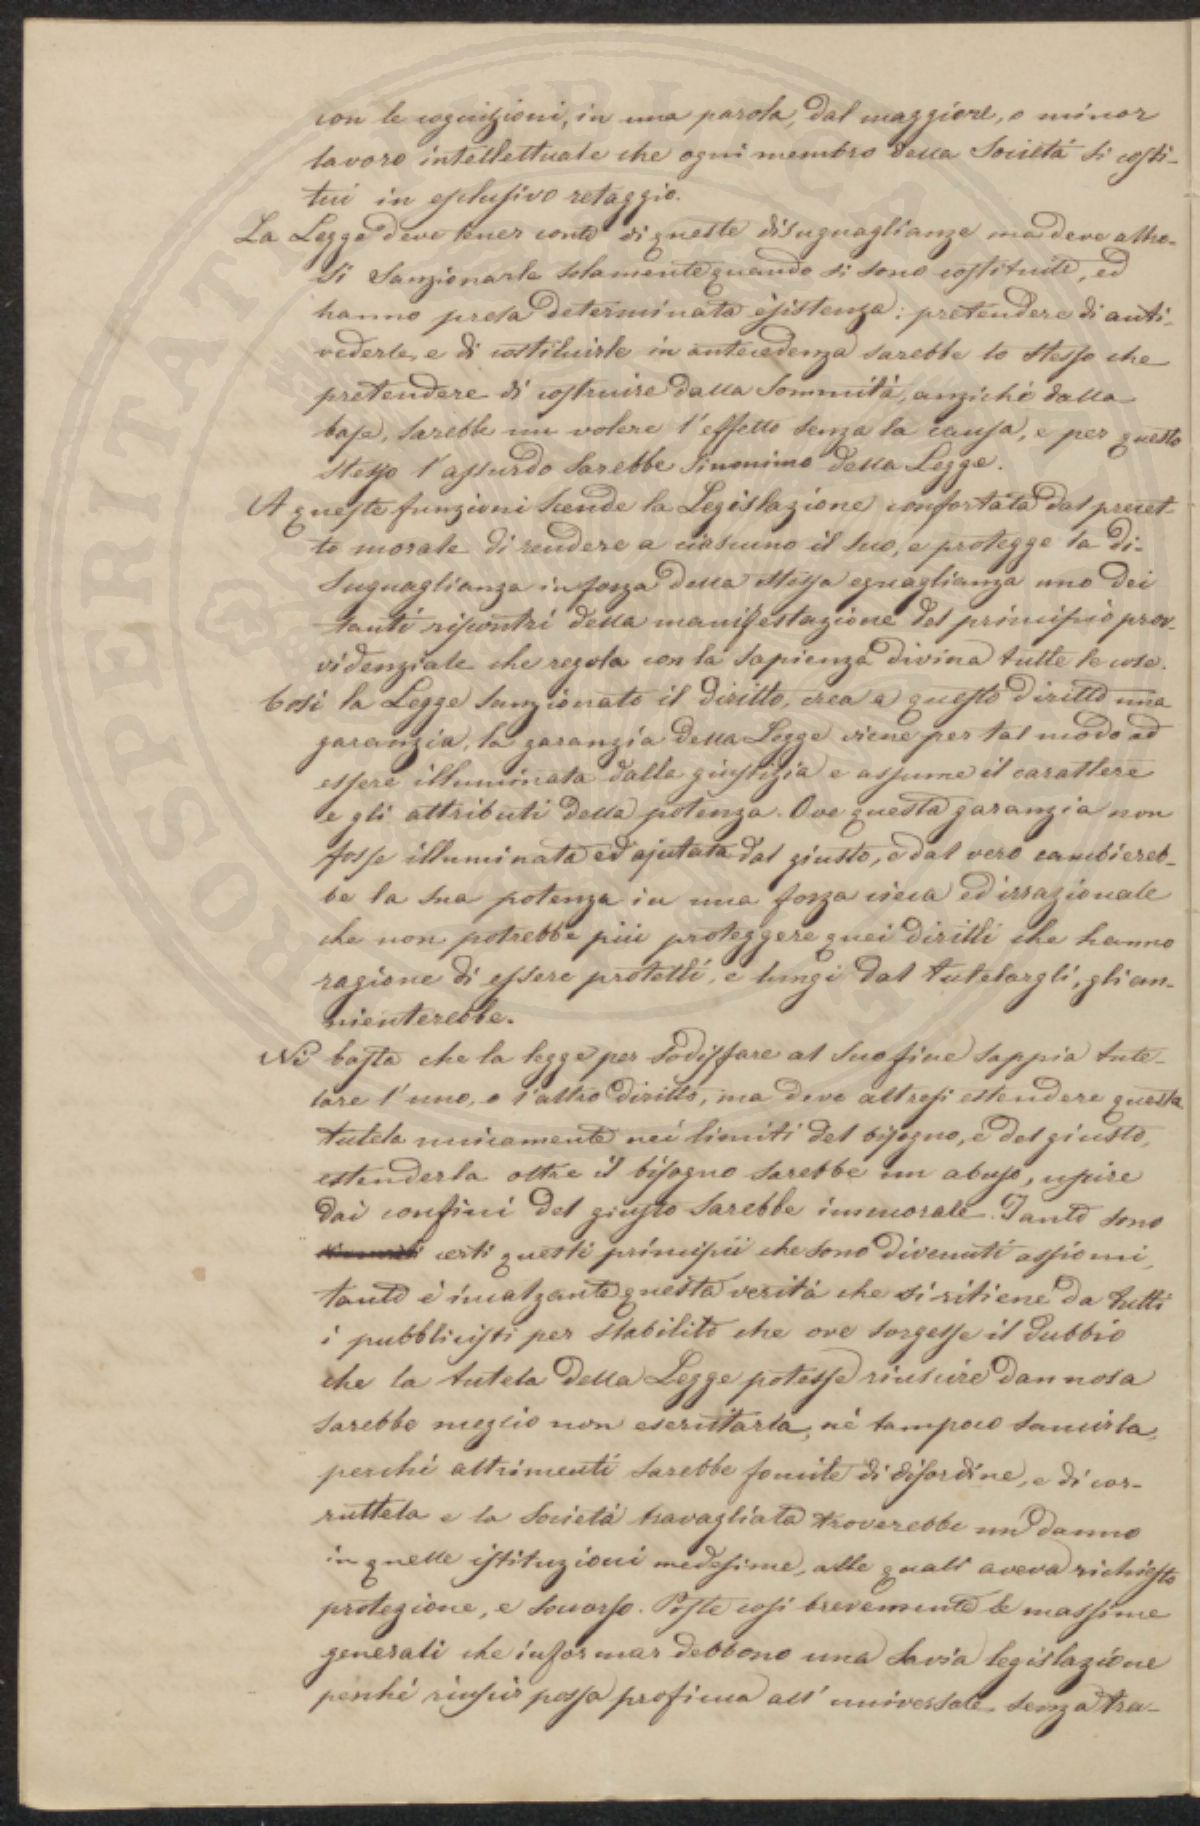 con le cognizioni, in una parola, dal maggiore, o minor
lavoro intellettuale che ogni membro della Società si costi-
tui in esclusivo retaggio.
La Legge deve tener conto di queste disuguaglianze ma deve altre-
si sanzionarle solamente quando si sono costituite, ed
hanno presa determinata esistenza: pretendere di anti-
vederle, e di costituirle in antecedenza sarebbe lo stesso che
pretendere di costruire dalla sommità, anziché dalla
base, sarebbe un volere l'effetto senza la causa, e per questo
stesso l'assurdo sarebbe sinonimo della Legge.
A queste funzioni scende la Legislazione confortata dal precet-
to morale di rendere a ciascuno il suo, e protegge la di-
suguaglianza in forza della stessa eguaglianza uno dei
tanti riscontri della manifestazione del principio prov-
videnziale che regola con la sapienza divina tutte le cose.
Così la Legge sanzionato il diritto, crea a questo diritto una
garanzia, la garanzia della Legge viene per tal modo ad
essere illuminata dalla giustizia e assume il carattere
e gli attributi della potenza. Ove questa garanzia non
fosse illuminata ed ajutata dal giusto, e dal vero cambiereb-
be la sua potenza in una forza cieca ed irrazionale
che non potrebbe più proteggere quei diritti che hanno
ragione di essere protetti, e lungi dal tutelargli, gli an-
nienterebbe.
Nè basta che la legge per sodisfare al suo fine sappia tute-
lare l'uno, o l'altro diritto, ma deve altresi estendere questa
tutela unicamente nei limiti del bisogno, e del giusto,
estenderla oltre il bisogno sarebbe un abuso, uscire
dai confini del giusto sarebbe immorale. Tanto sono
certi questi principii che sono divenuti assiomi,
tanto è incalzante questa verità che si ritiene da tutti
i pubblicisti per stabilito che ove sorgesse il dubbio
che la tutela della Legge potesse riuscire dannosa
sarebbe meglio non esercitarla, né tampoco sancirla,
perchè altrimenti sarebbe fomite di disordine, e di cor-
ruttela e la Società travagliata troverebbe un danno
in quelle istituzioni medesime, alle quali aveva richiesto
protezione, e soccorso. Poste così brevemente le massime
generali che informar debbono una savia legislazione
perché riuscir possa proficua all'universale senza tra-
PROSPERITATI PUBLICAE